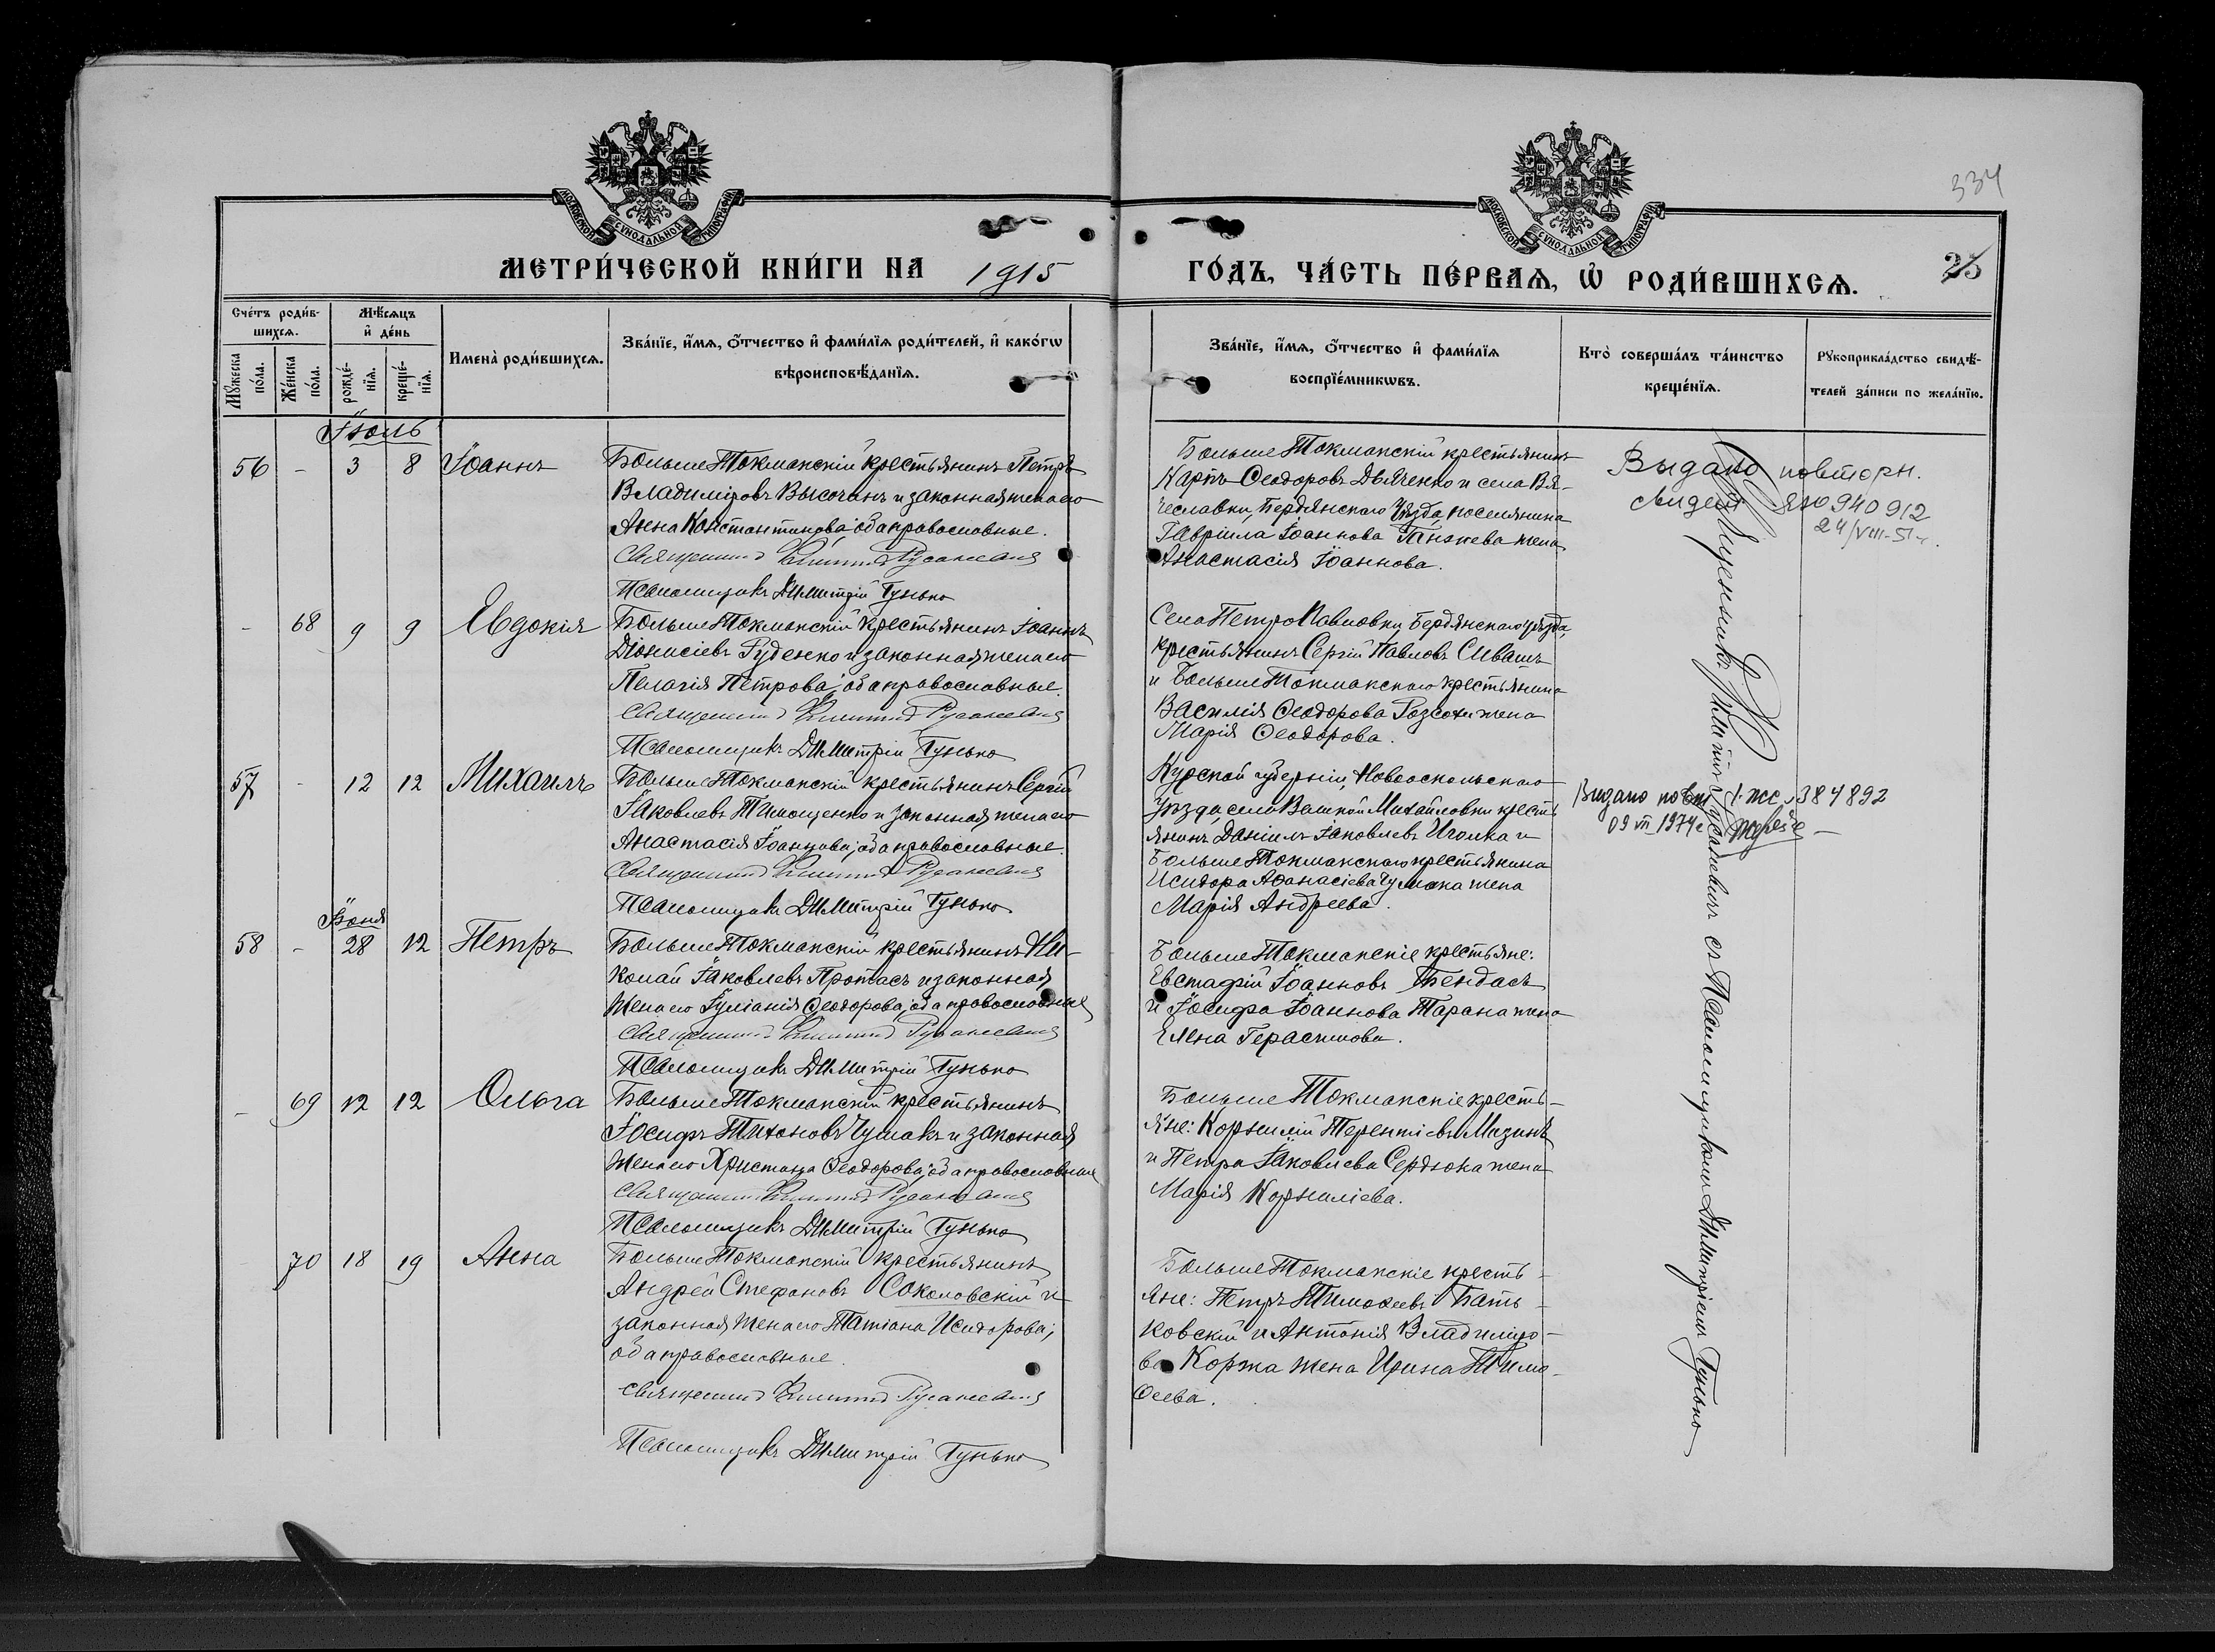 334
МОСКОВСКОЙ СУНОДАЛЬНОЙ ТИПОГРАФІИ
МЕТРИ́ЧЕСКОЙ КНИ́ГИ НА 1915
МОСКОВСКОЙ СУНОДАЛЬНОЙ ТИПОГРАФІИ
ГО́ДЪ, ЧА́СТЬ ПЕ́РВАѦ, Ѡ҆ РОДИ́ВШИХСѦ.
25
Сче́тъ роди́в-
шихсѧ.
Мꙋ́жеска по́ла.
Же́нска по́ла.
Мѣ́сѧцъ
и҆ де́нь
рожде́-
нїѧ.
креще́-
нїѧ.
Имена̀ роди́вшихсѧ.
Зва́нїе, и҆́мѧ, ѻ҆́тчество и҆ фами́лїѧ роди́телей, и҆ како́гѡ
вѣроисповѣ́данїѧ.
Зва́нїе, и҆́мѧ, ѻ҆́тчество и҆ фами́лїѧ
воспрїе́мникѡвъ.
Кто̀ соверша́лъ та́инство
креще́нїѧ.
Рꙋкоприкла́дство свидѣ́-
телей за́писи по жела́нїю.
Іюль
56 - 3 8 Іоаннъ
БольшеТокмакскій крестьянинъ Петръ
Владиміровъ Высочинъ и законная жена его
Анна Константинова; оба православные.
Священникъ
Псаломщикъ Димитрій Гунько
БольшеТокмакскій крестьянинъ
Карпъ Ѳеодоровъ Дьяченко и села Вя-
чеславки, Бердянскаго Уѣзда, поселянина
Гавріила Іоаннова жена
Анастасія Іоаннова.
Выдано повторн.
940912
24/VIII-51 г.
- 68 9 9 Евдокія
БольшеТокмакскій крестьянинъ Іоаннъ
Діонисіевъ Руденко и законная жена его
Пелагія Петрова; оба православные.
Священникъ
Псаломщикъ Димитрій Гунько
Села ПетроПавловки, Бердянскаго уѣзда,
крестьянинъ Сергій Павловъ Сивашъ
и БольшеТокмакскаго крестьянина
Василія Ѳеодорова жена
Марія Ѳеодорова.
57 - 12 12 Михаилъ
БольшеТокмакскій крестьянинъ Сергій
Іаковлевъ Тимощенко и законная жена его
Анастасія Іоаннова; оба православные.
Священникъ
Псаломщикъ Димитрій Гунько
Курской губерніи, Новооскольскаго
Уѣзда, села Михайловки кресть
янинъ Даніилъ Іаковлевъ и
БольшеТокмакскаго крестьянина
Исидора Аѳанасіева Чумака жена
Марія Андреева.
Видано повт 384892
09 VII 1974 г
Іюня
58 - 28 12 Петръ
БольшеТокмакскій крестьянинъ Ни-
колай Іаковлевъ Протасъ и законная
жена его Іуліанія Ѳеодорова; оба православные
Священникъ
Псаломщикъ Димитрій Гунько
БольшеТокмакскіе крестьяне:
Евстафій Іоанновъ Бендасъ
и Іосифа Іоаннова Тарана жена
Елена Герасимова.
- 69 12 12 Ольга
БольшеТокмакскій крестьянинъ
Іосифъ Тихоновъ Чумакъ и законная
жена его Христина Ѳеодорова; оба православные
Священникъ
Псаломщикъ Димитрій Гунько
БольшеТокмакскіе кресть-
яне: Корнилій Терентіевъ Мизинъ
и Петра Іаковлева Сердюка жена
Марія Корниліева.
70 18 19 Анна
БольшеТокмакскій крестьянинъ
Андрей Стефановъ Соколовскій и
законная жена его Татіана Исидорова;
оба православные.
Священникъ
Псаломщикъ Димитрій Гунько
БольшеТокмакскіе кресть-
яне: Петръ Тимоѳеевъ Бать-
ковскій и Антонія Владиміро-
ва Коржа жена Ирина Тимо-
ѳеева.
Священникъ съ Псаломщикомъ Димитріемъ Гунько